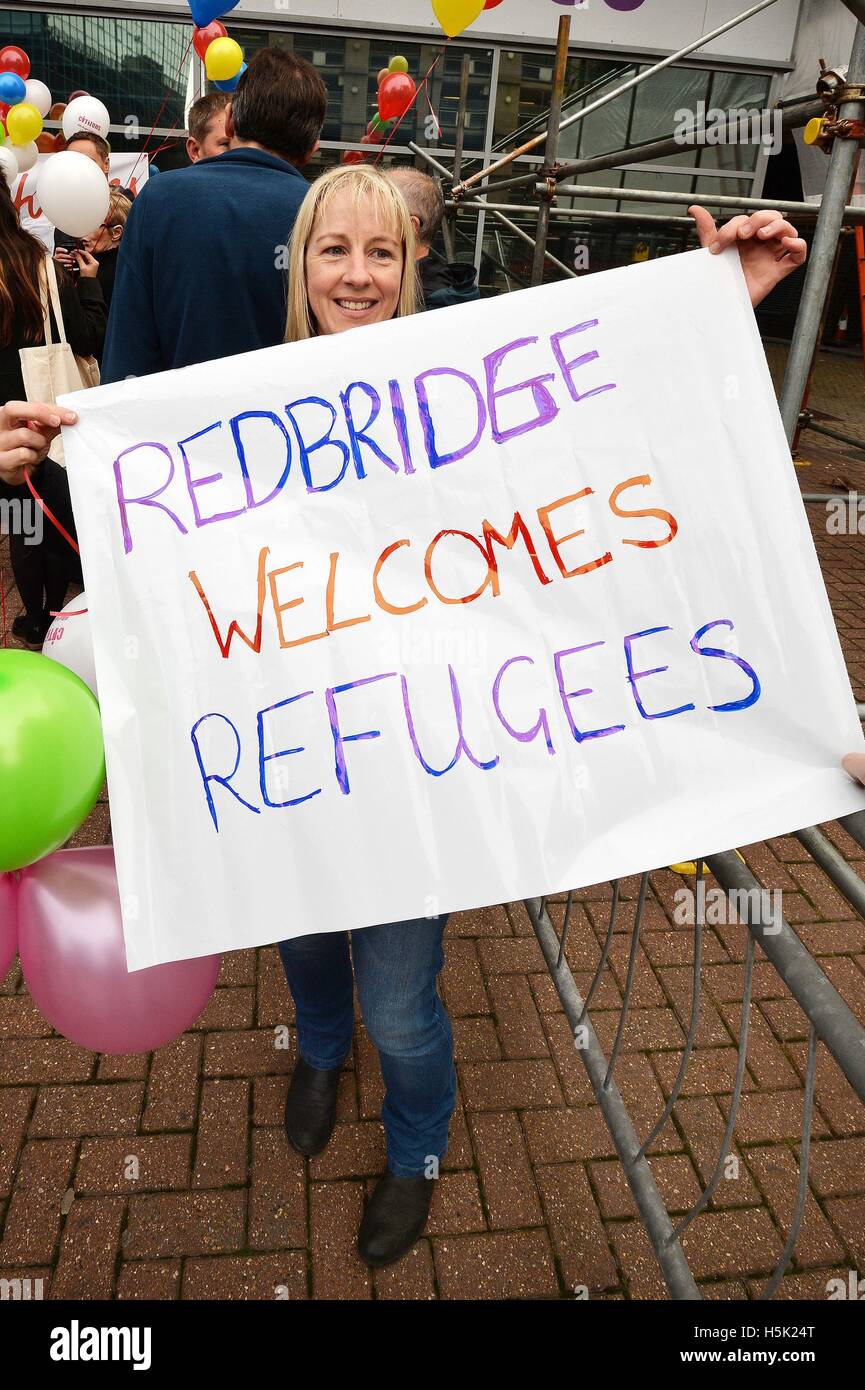 REDBRIDGE
WELCOMES
REFUGEES
CITIZENS
alamy
alamy
Image ID: H5K24T
www.alamy.com